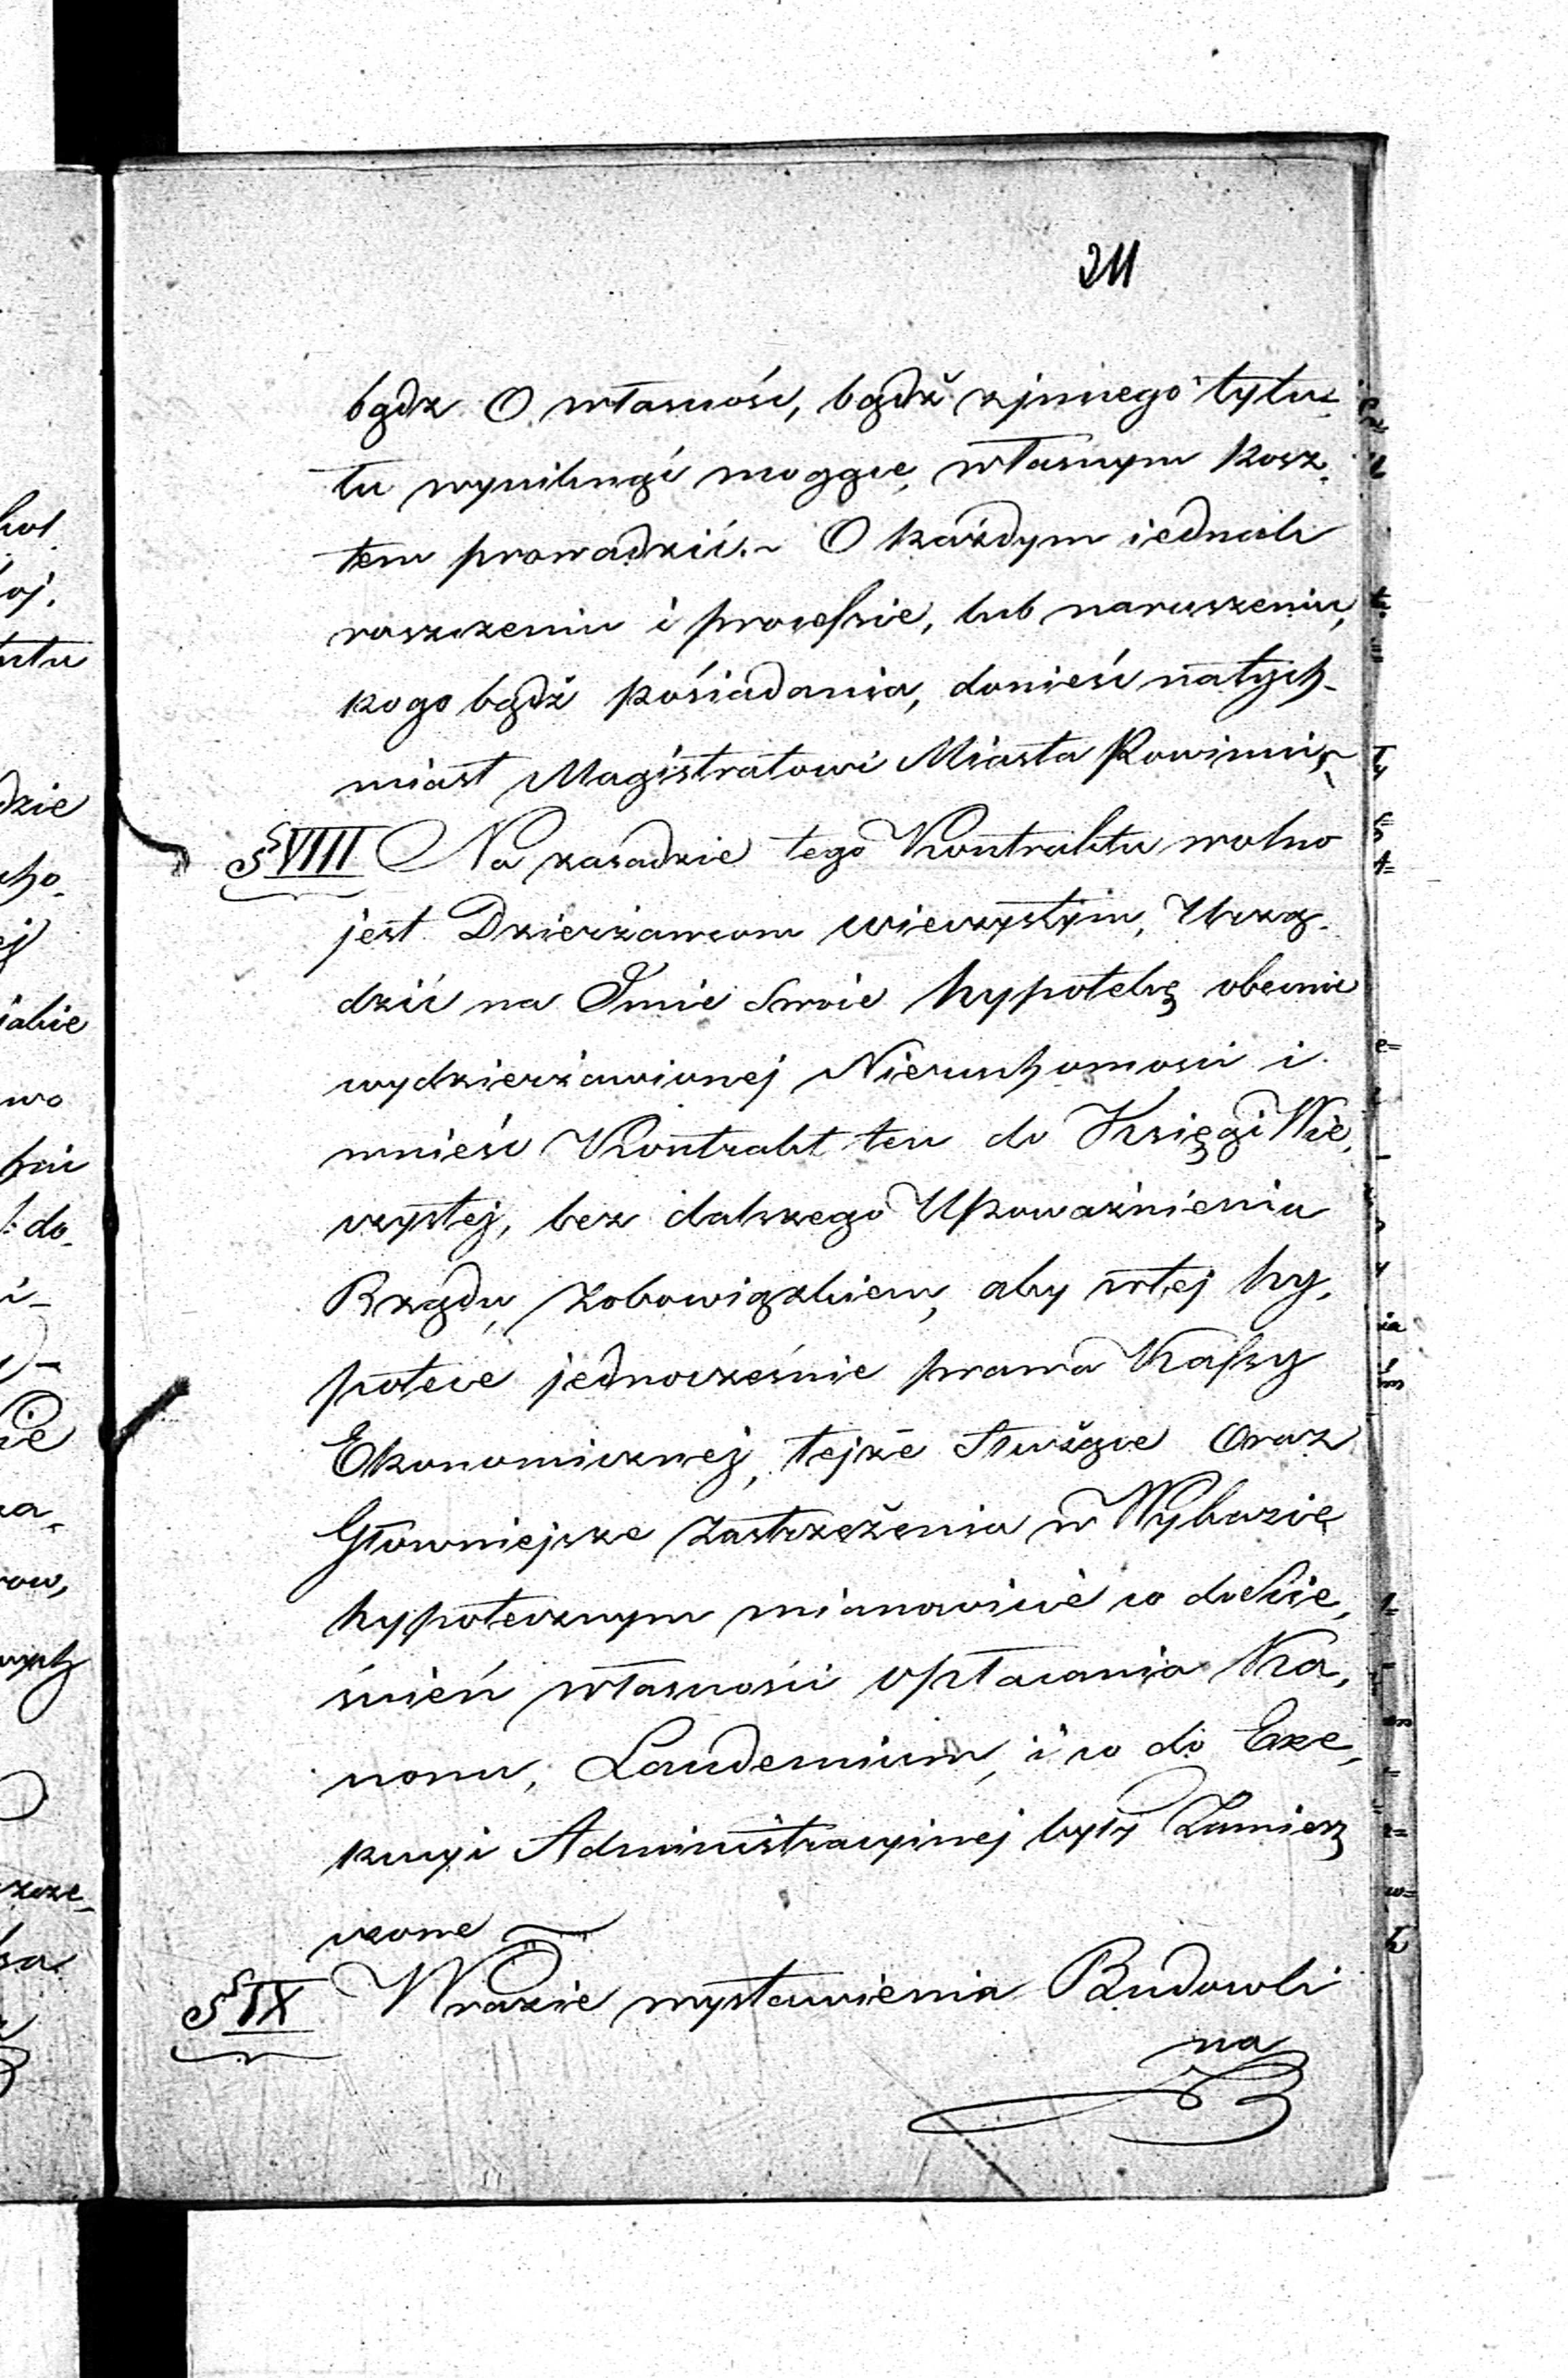 211
bądz O własność, bądź z jnnego tytu-
łu wyniknąć mogące, własnym kosz-
tem prowadzić. O każdym iednak
roszczeniu i processie, lub naruszeniu,
kogo bądź posiadania, donieść natych-
miast Magistratowi Miasta
§ VIII Na zasadzie tego Kontraktu wolno
jest Dzierżawcom wieczystym, Urzą-
dzić na Imie Swoie hypotekę obecnie
wydzierżawionej Nieruchomości i
wnieść Kontrakt ten do Księgi Wie-
czystej, bez dalszego Upoważnienia
Rządu, zobowiązkiem, aby wtej hy-
potece jednocześnie prawa Kassy
Ekonomicznej, tejże Służące Oraz
Głowniejsze Zastrzeżenia w Wykazie
hypotecznym mianowicie co do ście-
śnień własności opłacania Ka-
nonu, Laudemium, i co do Exe-
kucyi Administracyinej były Zamiesz
czone
§ IX W razie wystawienia Budowli
na